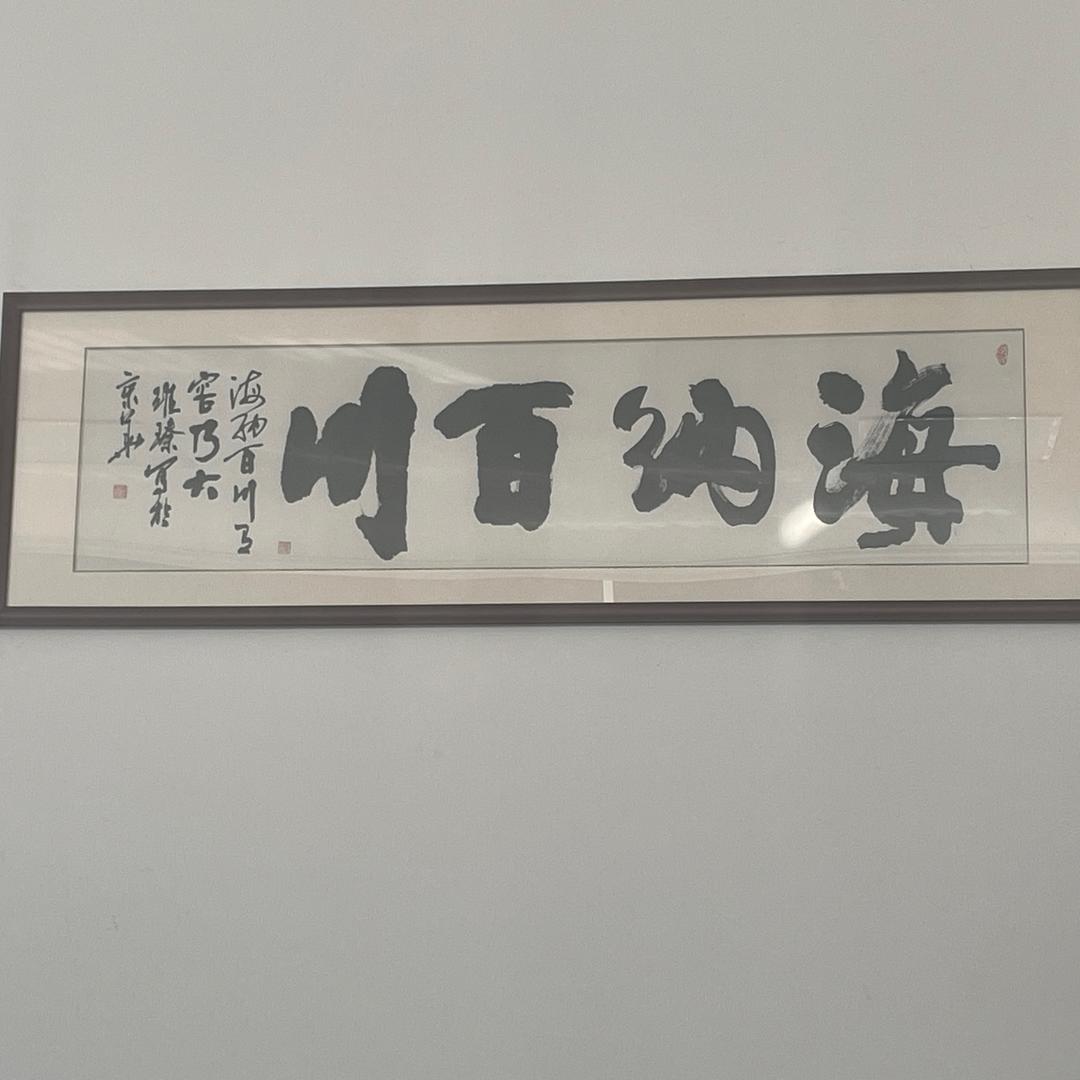 海纳百川
海纳百川有
容乃大
维臻写于
京华